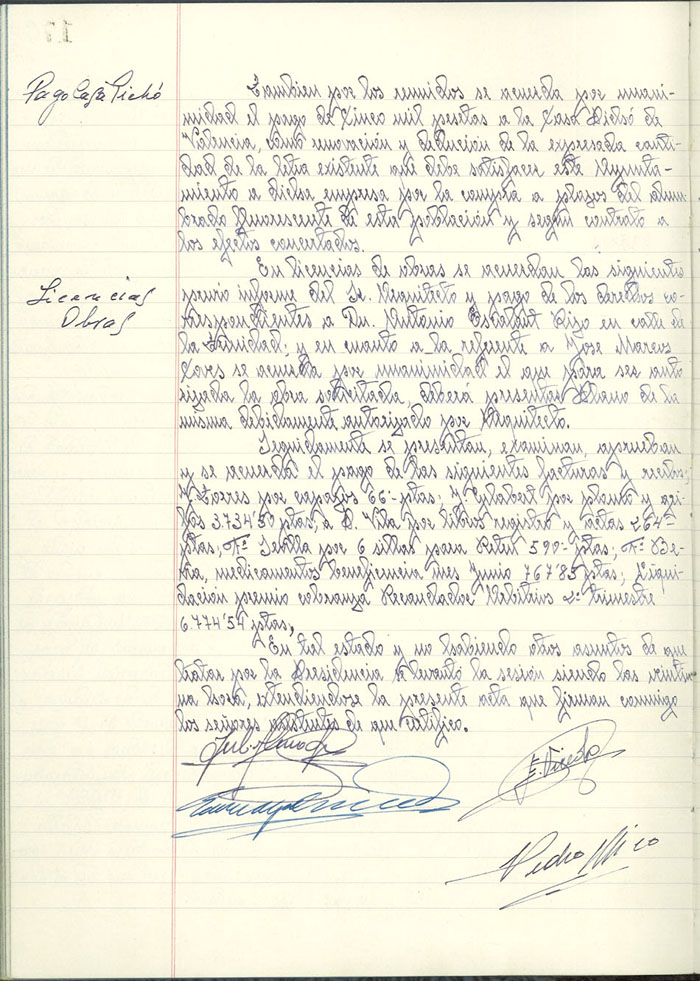 Pago Casa Pichó
Tambien por los reunidos se acuerda por unani-
midad el pago de Cinco mil pesetas a la Casa Pichó de
Valencia, como renovación y deducción de la expresada canti-
dad de la letra existente que debe satisfacer este Ayunta-
miento a dicha empresa por la compra a plazos del alum-
brado fluorescente de esta población y según contrato a
los efectos concertados.
Licencias
Obras
En licencias de obras se acuerdan las siguientes
previo informe del Sr. Arquitecto y pago de los derechos co-
rrespondientes a Dn. Antonio en calle de
la Trinidad; y en cuanto a la referente a Jose Marcos
se acuerda por unanimidad el que para ser auto
rizada la obra solicitada, deberá presentar Plano de la
misma debidamente autorizado por Arquitecto.
Seguidamente se presentan, examinan, aprueban
y se acuerda el pago de las siguientes facturas y recibos;
Torres por capazos 66'- ptas; por planto y
3.734'50 ptas; a D. Vila por libros registro y actas 264'-
ptas; Sevilla por 6 sillas para 590'- ptas;
medicamentos beneficencia mes Junio 767'85 ptas; Liqui-
dación premio cobranza Recaudador Arbitrios 2º trimestre
6.774'54 ptas;
En tal estado y no habiendo otros asuntos de que
tratar por la Presidencia se levantó la sesión siendo las veintiu
na hora, extendiendose la presente acta que firman conmigo
los señores asistentes de que certifico.
Pedro Mico